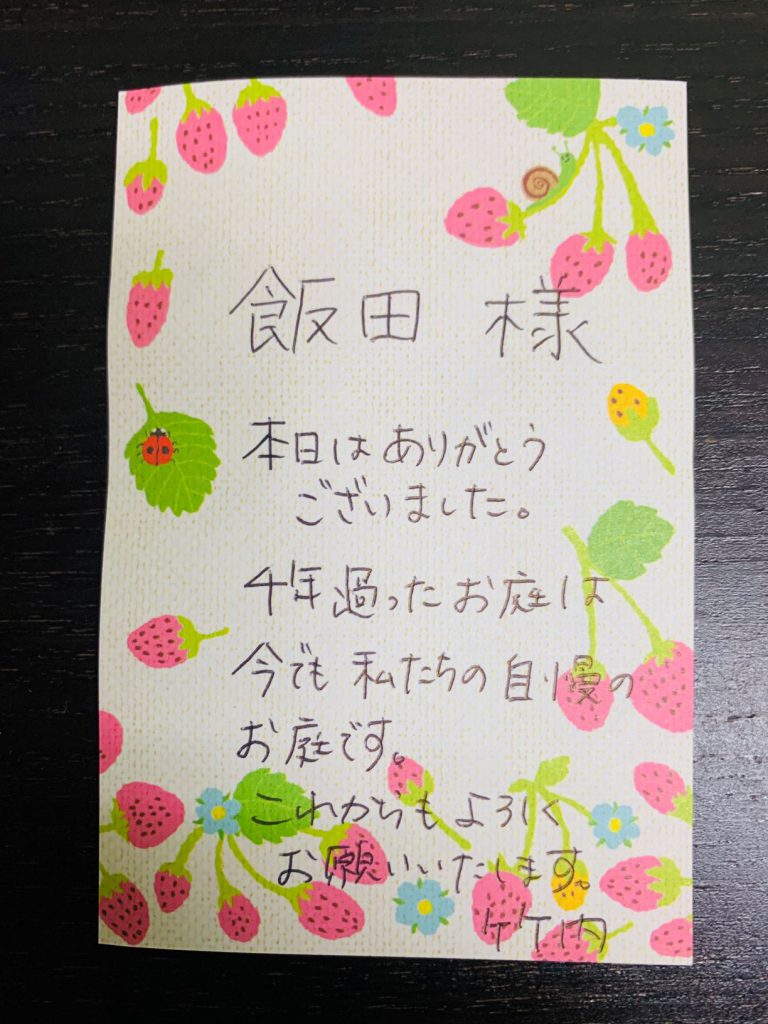 飯田 様
本日は ありがとう
ございました。
4年過ったお庭は
今でも 私たちの自慢の
お庭です。
これからも よろしく
お願いいたします。
竹内